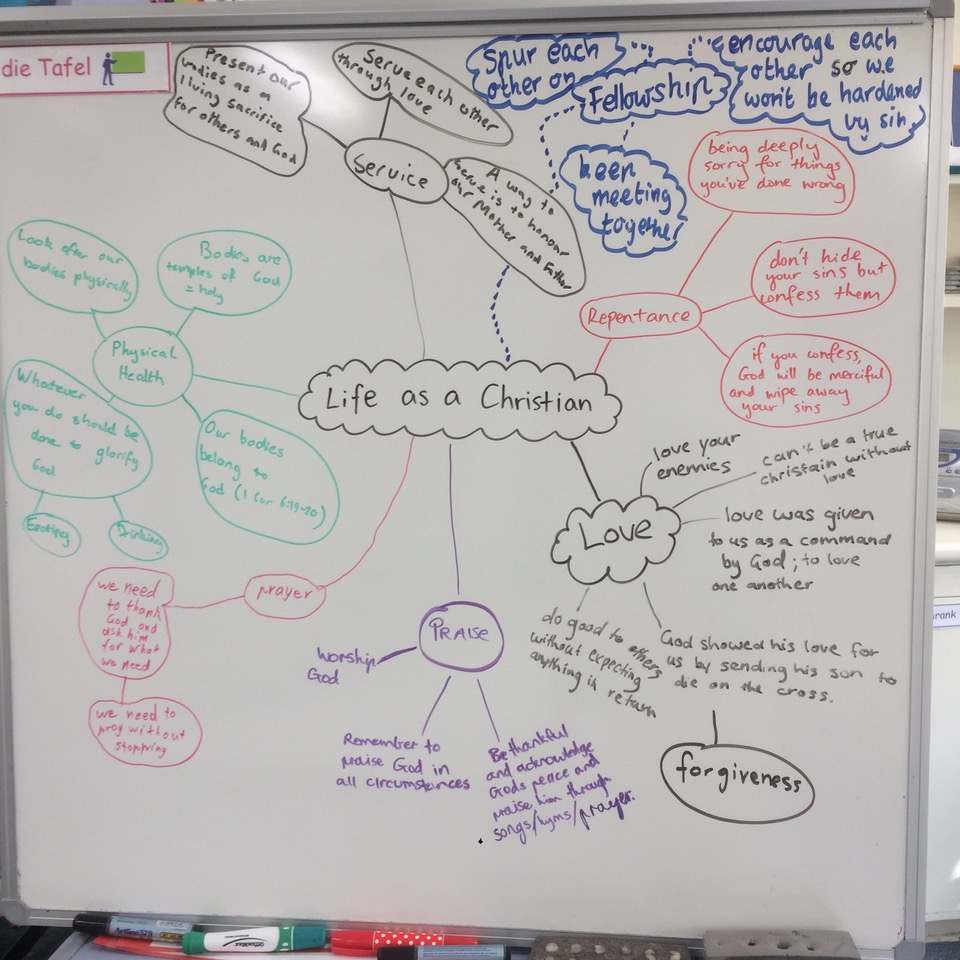 die Tafel
Present our
bodies as a
living sacrifice
for others and God
Serve each other
through love
Service
A way to
serve is to honour
our Mother and Father
Spur each
other on
Fellowship
encourage each
other so we
won't be hardened
by sin
keep
meeting
together
being deeply
sorry for things
you've done wrong
Repentance
don't hide
your sins but
confess them
if you confess,
God will be merciful
and wipe away
your sins
Look after our
bodies physically
Bodies are
temples of God
= holy
Physical
Health
Whatever
you do should be
done to glorify
God
Eating
Drinking
Our bodies
belong to
God (1 Cor 6:19-20)
Life as a Christian
prayer
we need
to thank
God and
ask him
for what
we need
we need to
pray without
stopping
PRAISE
worship
God
Remember to
praise God in
all circumstances
Be thankful
and acknowledge
Gods peace and
praise him through
songs/hyms/prayer.
Love
love your
enemies
can't be a true
christain without
love
love was given
to us as a command
by God; to love
one another
do good to others
without expecting
anything in return
God showed his love for
us by sending his son to
die on the cross.
forgiveness